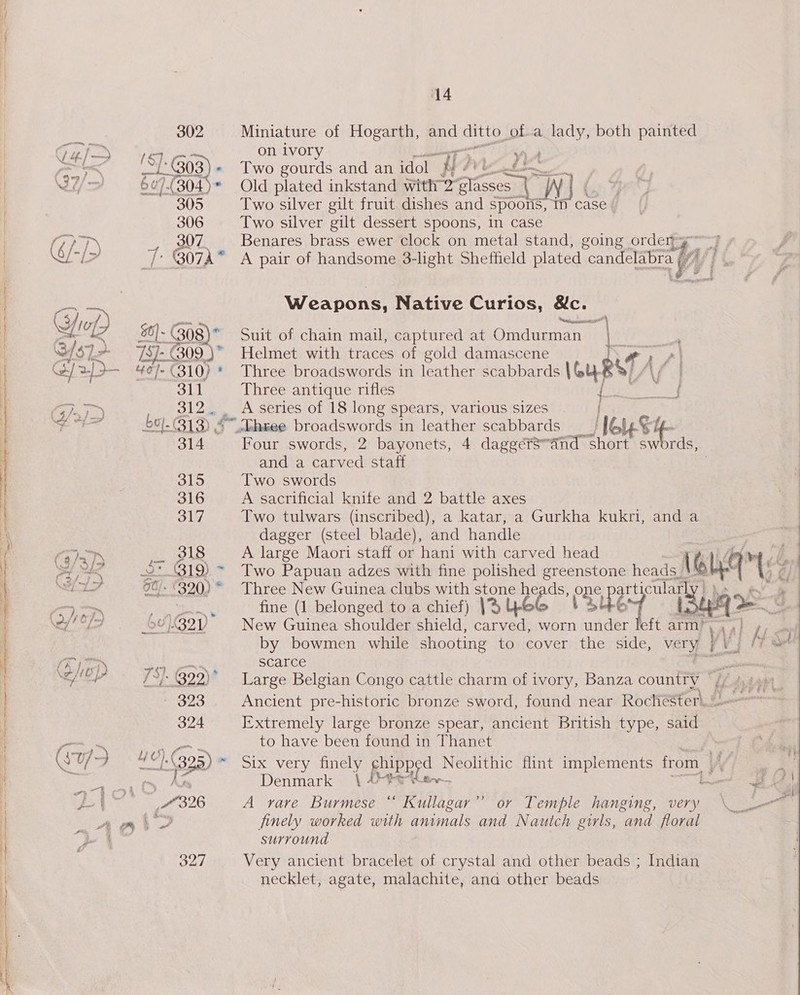 14
302 Miniature of Hogarth, and ditto of a lady, both painted
on ivory
15/- 303 Two gourds and an idol
60/- 304 Old plated inkstand with 2 glasses
305 Two silver gilt fruit dishes and spoons, in case
306 Two silver gilt dessert spoons, in case
307 Benares brass ewer clock on metal stand, going order
307A A pair of handsome 3-light Sheffield plated candelabra
Weapons, Native Curios, &c.
308 Suit of chain mail, captured at Omdurman
309 Helmet with traces of gold damascene
310 Three broadswords in leather scabbards
311 Three antique rifles
312 A series of 18 long spears, various sizes
313 Three broadswords in leather scabbards
314 Four swords, 2 bayonets, 4 daggers and short swords,
and a carved staff
315 Two swords
316 A sacrificial knife and 2 battle axes
317 Two tulwars (inscribed), a katar, a Gurkha kukri, and a
dagger (steel blade), and handle
318 A large Maori staff or hani with carved head
319 Two Papuan adzes with fine polished greenstone heads
320 Three New Guinea clubs with stone heads, one particularly
fine (1 belonged to a chief)
321 New Guinea shoulder shield, carved, worn under left arm
by bowmen while shooting to cover the side, very
scarce
322 Large Belgian Congo cattle charm of ivory, Banza country
323 Ancient pre-historic bronze sword, found near Rochester
324 Extremely large bronze spear, ancient British type, said
to have been found in Thanet
325 Six very finely chipped Neolithic flint implements from
Denmark
326 A rare Burmese “Kullagar” or Temple hanging, very
finely worked with animals and Nautch girls, and floral
surround
327 Very ancient bracelet of crystal and other beads ; Indian
necklet, agate, malachite, and other beads